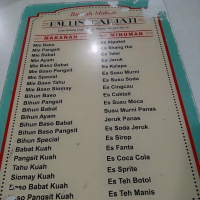 Rumah Makan
MAKANAN
MINUMAN
Mie Baso
Mie Pangsit
Mie Babat
Mie Ayam
Mie Baso Pangsit
Mie Special
Mie Baso Tahu
Mie Baso Siomay
Bihun Baso
Bihun Pangsit
Bihun Babat
Bihun Ayam
Bihun Baso Babat
Bihun Baso Pangsit
Bihun Special
Babat Kuah
Pangsit Kuah
Tahu Kuah
Siomay Kuah
Baso Babat Kuah
Baso Pangsit Kuah
Es Alpukat
Es Shang Hai
Es Teler
Es Jeruk
Es Kelapa
Es Susu Murni
Es Susu Soda
Es Cingcau
Es Coktail
Es Susu Moca
Susu Murni Panas
Jeruk Panas
Es Soda Jeruk
Es Sirop
Es Fanta
Es Coca Cola
Es Sprite
Es Teh Botol
Es Teh Manis